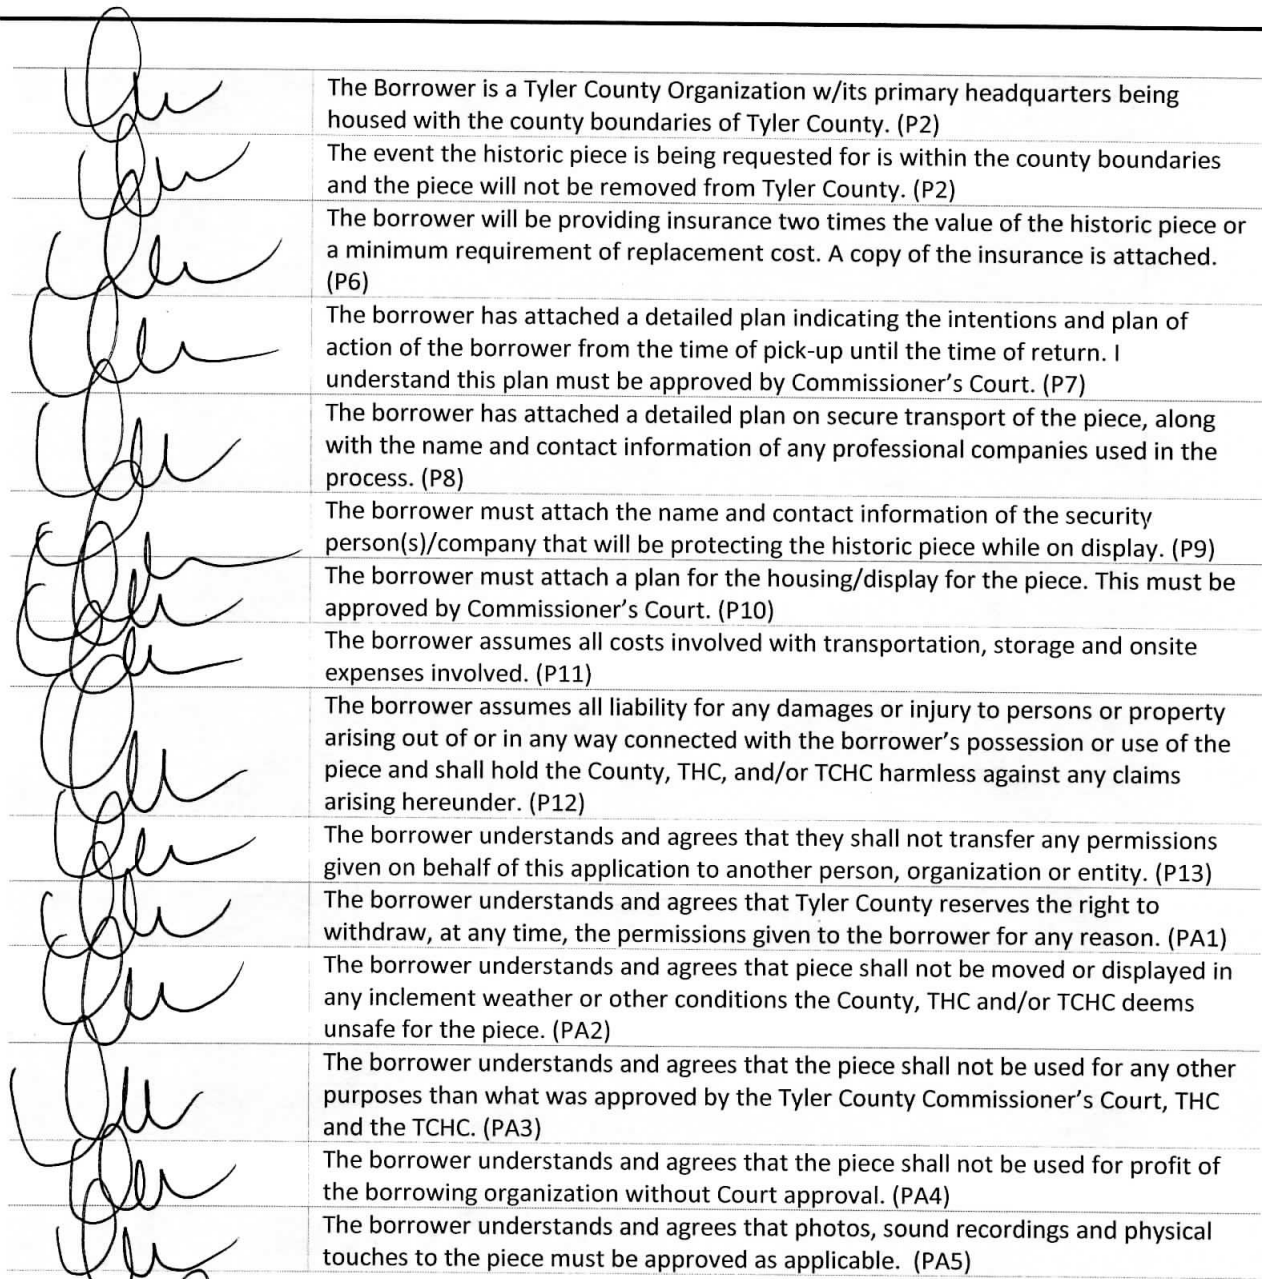 The Borrower is a Tyler County Organization w/its primary headquarters being
housed with the county boundaries of Tyler County. (P2)
The event the historic piece is being requested for is within the county boundaries
and the piece will not be removed from Tyler County. (P2)
The borrower will be providing insurance two times the value of the historic piece or
a minimum requirement of replacement cost. A copy of the insurance is attached.
(P6)
The borrower has attached a detailed plan indicating the intentions and plan of
action of the borrower from the time of pick-up until the time of return. I
understand this plan must be approved by Commissioner's Court. (P7)
The borrower has attached a detailed plan on secure transport of the piece, along
with the name and contact information of any professional companies used in the
process. (P8)
The borrower must attach the name and contact information of the security
person(s)/company that will be protecting the historic piece while on display. (P9)
The borrower must attach a plan for the housing/display for the piece. This must be
approved by Commissioner's Court. (P10)
The borrower assumes all costs involved with transportation, storage and onsite
expenses involved. (P11)
The borrower assumes all liability for any damages or injury to persons or property
arising out of or in any way connected with the borrower's possession or use of the
piece and shall hold the County, THC, and/or TCHC harmless against any claims
arising hereunder. (P12)
The borrower understands and agrees that they shall not transfer any permissions
given on behalf of this application to another person, organization or entity. (P13)
The borrower understands and agrees that Tyler County reserves the right to
withdraw, at any time, the permissions given to the borrower for any reason. (PA1)
The borrower understands and agrees that piece shall not be moved or displayed in
any inclement weather or other conditions the County, THC and/or TCHC deems
unsafe for the piece. (PA2)
The borrower understands and agrees that the piece shall not be used for any other
purposes than what was approved by the Tyler County Commissioner's Court, THC
and the TCHC. (PA3)
The borrower understands and agrees that the piece shall not be used for profit of
the borrowing organization without Court approval. (PA4)
The borrower understands and agrees that photos, sound recordings and physical
touches to the piece must be approved as applicable. (PA5)